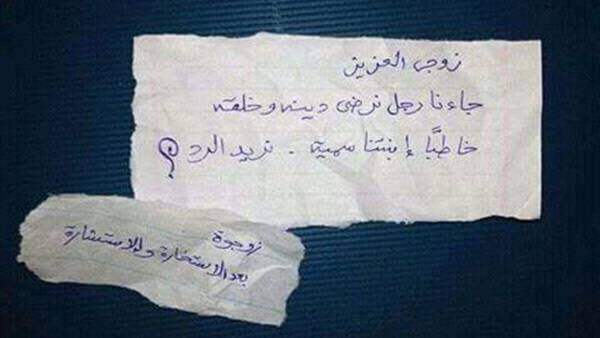 زوجي العزيز
جاءنا رجل نرضى دينه وخلقه
خاطبًا إبنتنا سمية . نريد الرد ؟
زوجوة
بعد الاستخارة والاستشارة